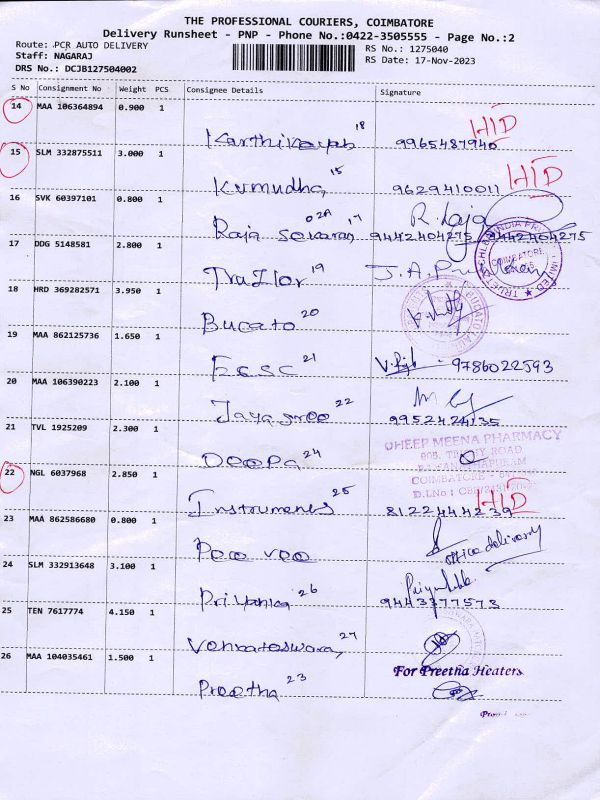 THE PROFESSIONAL COURIERS, COIMBATORE
Delivery Runsheet - PNP - Phone No.:0422-3505555 - Page No.:2
Route: PCR AUTO DELIVERY
RS No.: 1275040
Staff: NAGARAJ
RS Date: 17-Nov-2023
DRS No.: DCJB127504002
S No Consignment No Weight PCS Consignee Details Signature
14 MAA 106364894 0.900 1
Karthikayab 18 9965487940 HID
15 SLM 332875511 3.000 1
Kumudha 15 9629410011 HID
16 SVK 60397101 0.800 1
Raja Sekaran 17 R. Raja 9442404275 9442404275
17 DDG 5148581 2.800 1
Trailor 19 J.A.
COIMBATORE
18 HRD 369282571 3.950 1
Bucato 20
19 MAA 862125736 1.650 1
21 9786022593
20 MAA 106390223 2.100 1
Jayasree 22 9952424135
21 TVL 1925209 2.300 1
DHEEP MEENA PHARMACY
ROAD
COIMBATORE
D.LNo :
Deepa 24
22 NGL 6037968 2.850 1
Instruments 25 8122444239 HID
23 MAA 862586680 0.800 1
Peco veo office delivery
24 SLM 332913648 3.100 1
Priyanka 26 9443377573
25 TEN 7617774 4.150 1
Venkateswara 27
26 MAA 104035461 1.500 1
For Preetha Heaters
Preetha 23